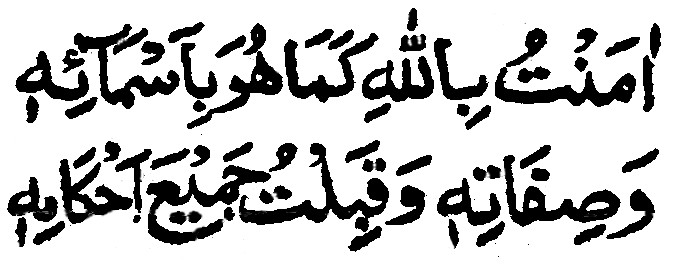 اٰمَنْتُ بِاللّٰهِ كَمَا هُوَ بِاَسْمَآئِهٖ
وَصِفَاتِهٖ وَقَبِلْتُ جَمِيْعَ اَحْكَامِهٖ